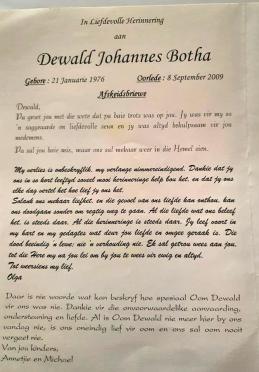 In Liefdevolle Herinnering
aan
Dewald Johannes Botha
Gebore : 21 Januarie 1976 Oorlede : 8 September 2009
Afskeidsbriewe
Dewald,
Pa groet jou met die wete dat pa baie trots was op jou. Jy was vir my so
'n saggeaarde en liefdevolle seun en jy was altyd behulpsaam vir jou
medemens.
Pa sal jou baie mis, maar ons sal mekaar weer in die Hemel sien.
My verlies is onbeskryflik, my verlange nimmereindigend. Dankie dat jy
ons in so kort leeftyd soveel mooi herinneringe help bou het, en dat jy ons
elke dag vertel het hoe lief jy ons het.
Solank ons mekaar liefhet, en die gevoel van ons liefde kan onthou, kan
ons doodgaan sonder om regtig weg te gaan. Al die liefde wat ons beleef
het, is steeds daar. Al die herinneringe is steeds daar. Jy leef voort in
my hart en my gedagtes wat deur jou liefde en omgee geraak is. Die
dood beëindig 'n lewe; nie 'n verhouding nie. Ek sal getrou wees aan jou,
tot die Here my na jou lei om by jou te wees vir ewig en altyd.
Tot weersiens my lief.
Olga
Daar is nie woorde wat kan beskryf hoe spesiaal Oom Dewald
vir ons was nie. Dankie vir die onvoorwaardelike aanvaarding,
ondersteuning en liefde. Al is Oom Dewald nie meer hier by ons
vandag nie, is ons oneindig lief vir oom en ons sal oom nooit
vergeet nie.
Van jou kinders,
Annetjie en Michael